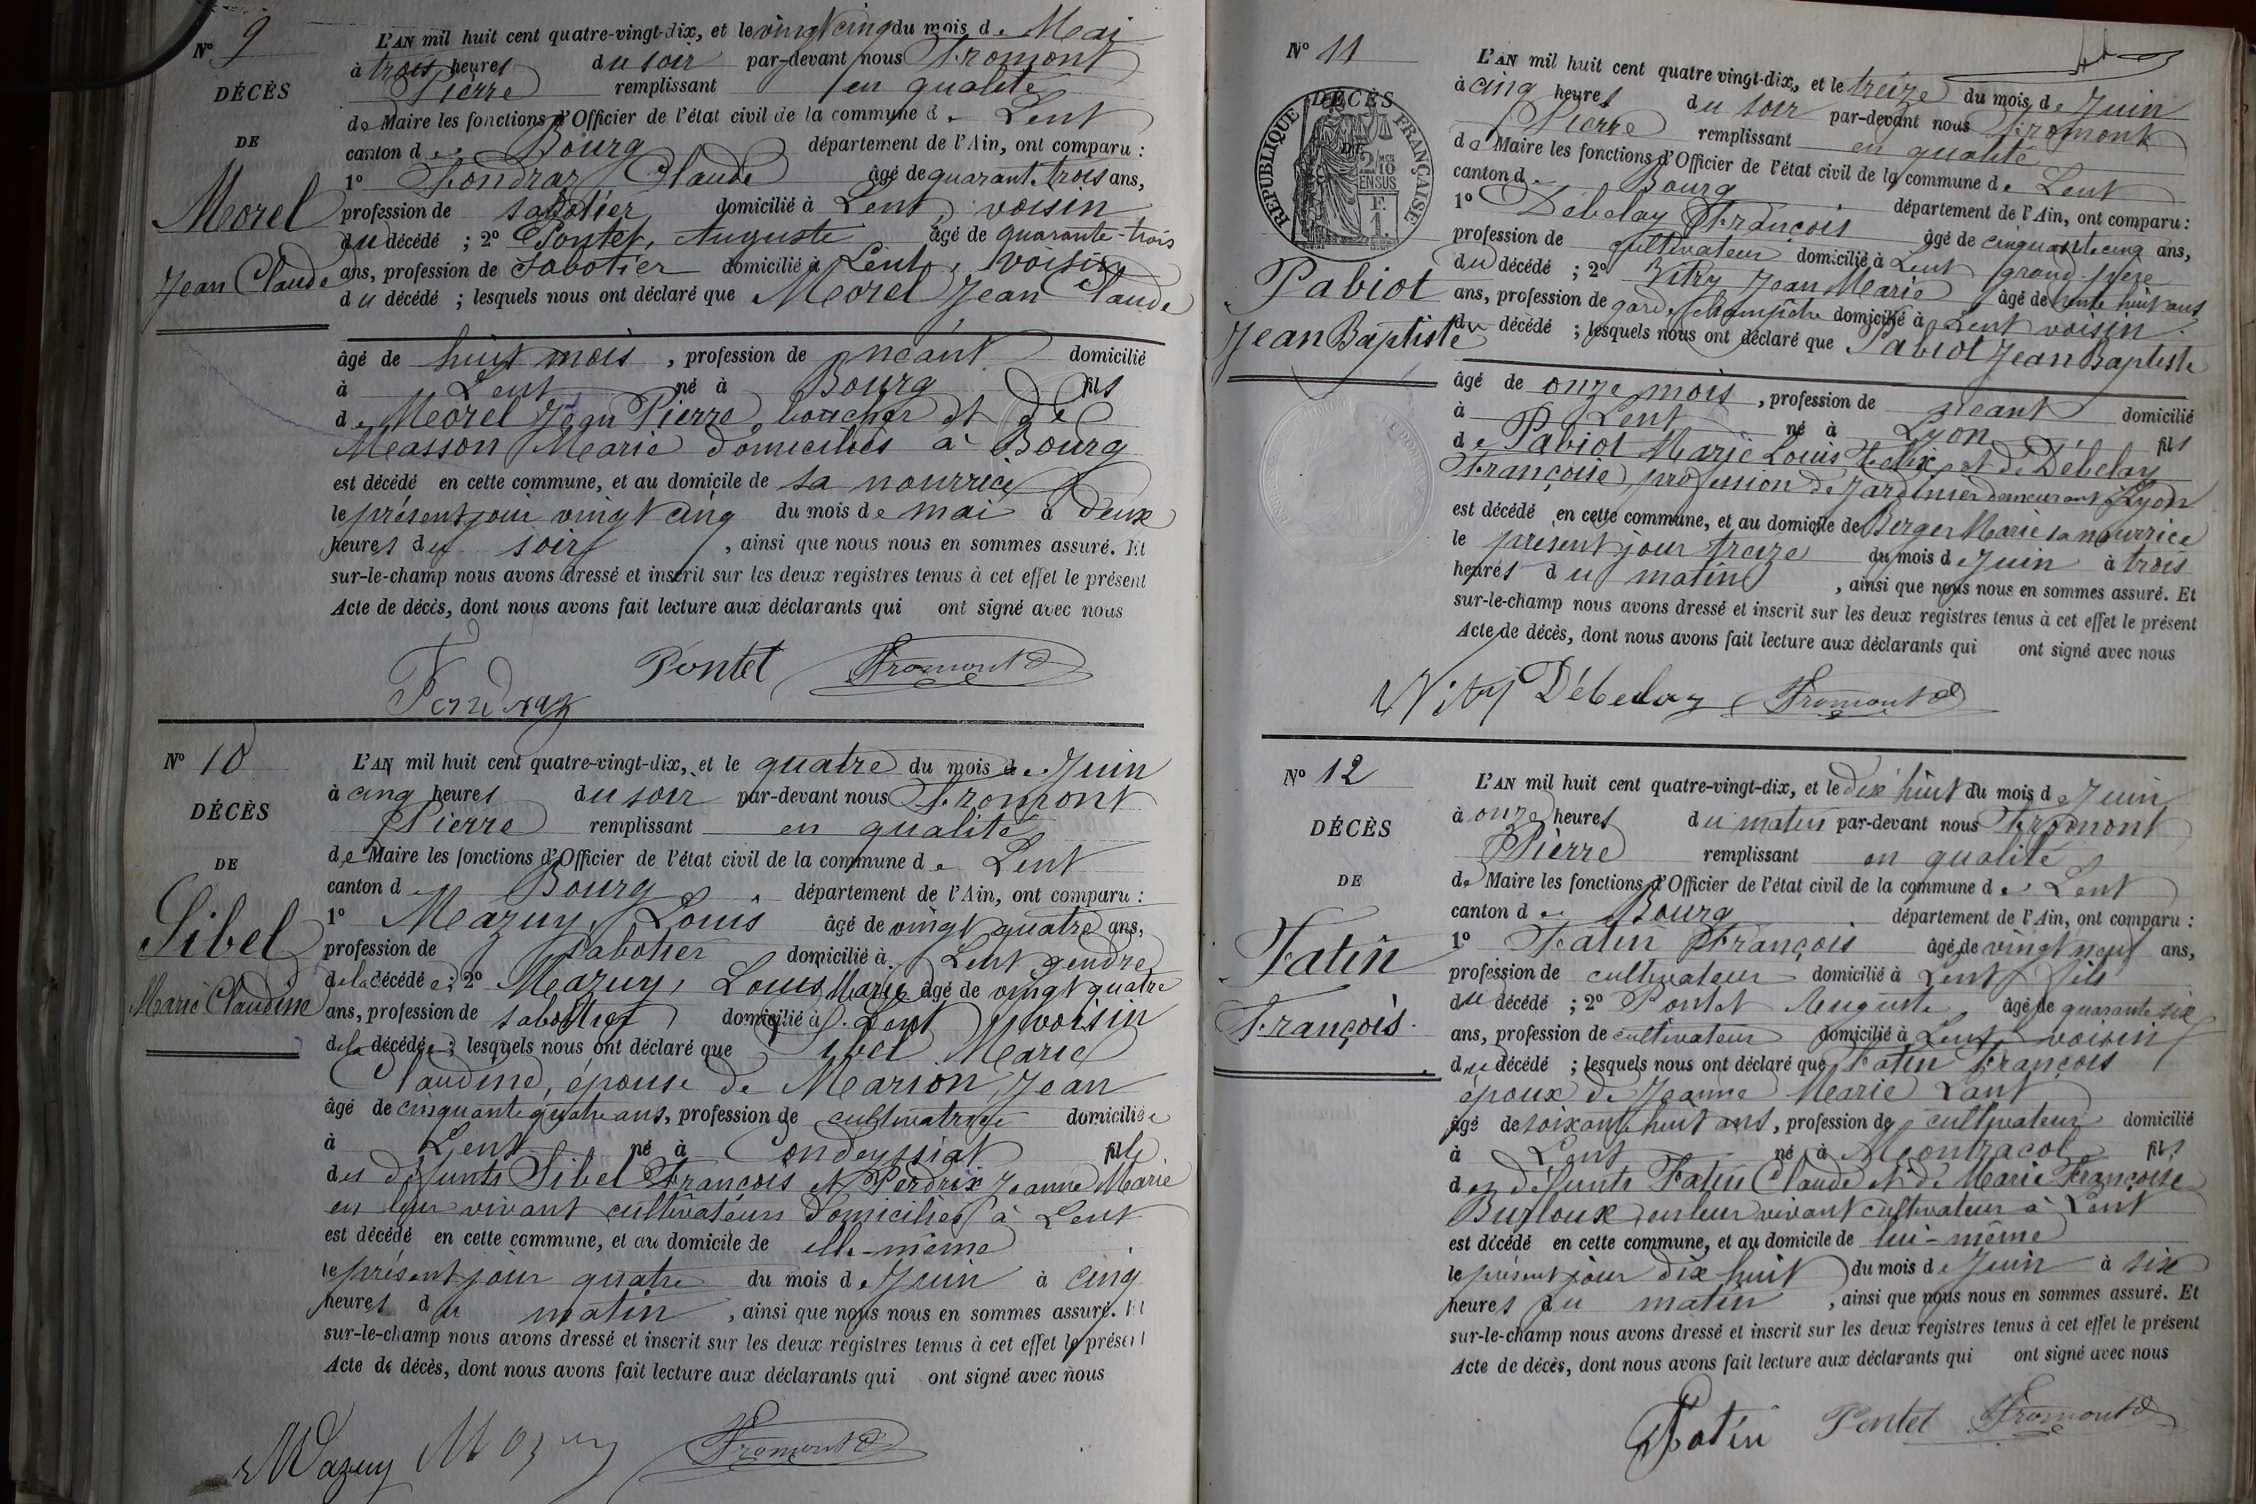 N° 9
DÉCÈS
DE
Morel
Jean Claude
L'AN mil huit cent quatre-vingt-dix, et le vingt cinq du mois de Mai
à trois heures du soir par-devant nous Fromont
Pierre remplissant en qualité
de Maire les fonctions d'Officier de l'état civil de la commune de Lent
canton de Bourg département de l'Ain, ont comparu :
1° Fondraz Claude âgé de quarante trois ans,
profession de sabotier domicilié à Lent, voisin
du décédé ; 2° Pontet, Auguste âgé de quarante-trois
ans, profession de sabotier domicilié à Lent, voisin
du décédé ; lesquels nous ont déclaré que Morel Jean Claude
âgé de huit mois, profession de néant domicilié
à Lent né à Bourg fils
de Morel Jean Pierre, boucher et de
Masson Marie domiciliés à Bourg
est décédé en cette commune, et au domicile de sa nourrice
le présent jour vingt cinq du mois de mai à deux
heures du soir, ainsi que nous nous en sommes assuré. Et
sur-le-champ nous avons dressé et inscrit sur les deux registres tenus à cet effet le présent
Acte de décès, dont nous avons fait lecture aux déclarants qui ont signé avec nous
Fondraz Pontet Fromont
N° 10
DÉCÈS
DE
Sibel
Marie Claudine
L'AN mil huit cent quatre-vingt-dix, et le quatre du mois de Juin
à cinq heures du soir par-devant nous Fromont
Pierre remplissant en qualité
de Maire les fonctions d'Officier de l'état civil de la commune de Lent
canton de Bourg département de l'Ain, ont comparu :
1° Mazuy, Louis âgé de vingt quatre ans,
profession de sabotier domicilié à Lent gendre
de la décédée ; 2° Mazuy, Louis Marie âgé de vingt quatre
ans, profession de sabotier domicilié à Lent voisin
de la décédée ; lesquels nous ont déclaré que Sibel Marie
Claudine, épouse de Marion, Jean
âgé de cinquante quatre ans, profession de cultivatrice domiciliée
à Lent né à Condeyssiat fille
des défunts Sibel François et Perdrix Jeanne Marie
en leur vivant cultivateurs domiciliés à Lent
est décédé en cette commune, et au domicile de elle-même
le présent jour quatre du mois de Juin à cinq
heures du matin, ainsi que nous nous en sommes assuré. Et
sur-le-champ nous avons dressé et inscrit sur les deux registres tenus à cet effet le présent
Acte de décès, dont nous avons fait lecture aux déclarants qui ont signé avec nous
Mazuy Mazuy Fromont
N° 11
DÉCÈS
DE
RÉPUBLIQUE FRANÇAISE
2/10 EN SUS
F. 1.
Pabiot
Jean Baptiste
L'AN mil huit cent quatre vingt-dix, et le treize du mois de Juin
à cinq heures du soir par-devant nous Fromont
Pierre remplissant en qualité
de Maire les fonctions d'Officier de l'état civil de la commune de Lent
canton de Bourg département de l'Ain, ont comparu :
1° Débelay François âgé de cinquante cinq ans,
profession de cultivateur domicilié à Lent grand-père
du décédé ; 2° Vitry Jean Marie âgé de trente huit ans
ans, profession de garde champêtre domicilié à Lent voisin
du décédé ; lesquels nous ont déclaré que Pabiot Jean Baptiste
âgé de onze mois, profession de néant domicilié
à Lent né à Lyon fils
de Pabiot Marie Louis Félix et de Débelay
Françoise, profession de Jardinier demeurant à Lyon
est décédé en cette commune, et au domicile de Berger Marie sa nourrice
le présent jour treize du mois de Juin à trois
heures du matin, ainsi que nous nous en sommes assuré. Et
sur-le-champ nous avons dressé et inscrit sur les deux registres tenus à cet effet le présent
Acte de décès, dont nous avons fait lecture aux déclarants qui ont signé avec nous
Vitry Débelay Fromont
N° 12
DÉCÈS
DE
Fatin
François
L'AN mil huit cent quatre-vingt-dix, et le dix huit du mois de Juin
à onze heures du matin par-devant nous Fromont
Pierre remplissant en qualité
de Maire les fonctions d'Officier de l'état civil de la commune de Lent
canton de Bourg département de l'Ain, ont comparu :
1° Fatin François âgé de vingt neuf ans,
profession de cultivateur domicilié à Lent fils
du décédé ; 2° Pontet Auguste âgé de quarante six
ans, profession de cultivateur domicilié à Lent, voisin
du décédé ; lesquels nous ont déclaré que Fatin François
époux de Jeanne Marie Lant
âgé de soixante huit ans, profession de cultivateur domicilié
à Lent né à Montracol fils
des défunts Fatin Claude et de Marie Françoise
Burloux en leur vivant cultivateur à Lent
est décédé en cette commune, et au domicile de lui-même
le présent jour dix huit du mois de Juin à six
heures du matin, ainsi que nous nous en sommes assuré. Et
sur-le-champ nous avons dressé et inscrit sur les deux registres tenus à cet effet le présent
Acte de décès, dont nous avons fait lecture aux déclarants qui ont signé avec nous
Fatin Pontet Fromont